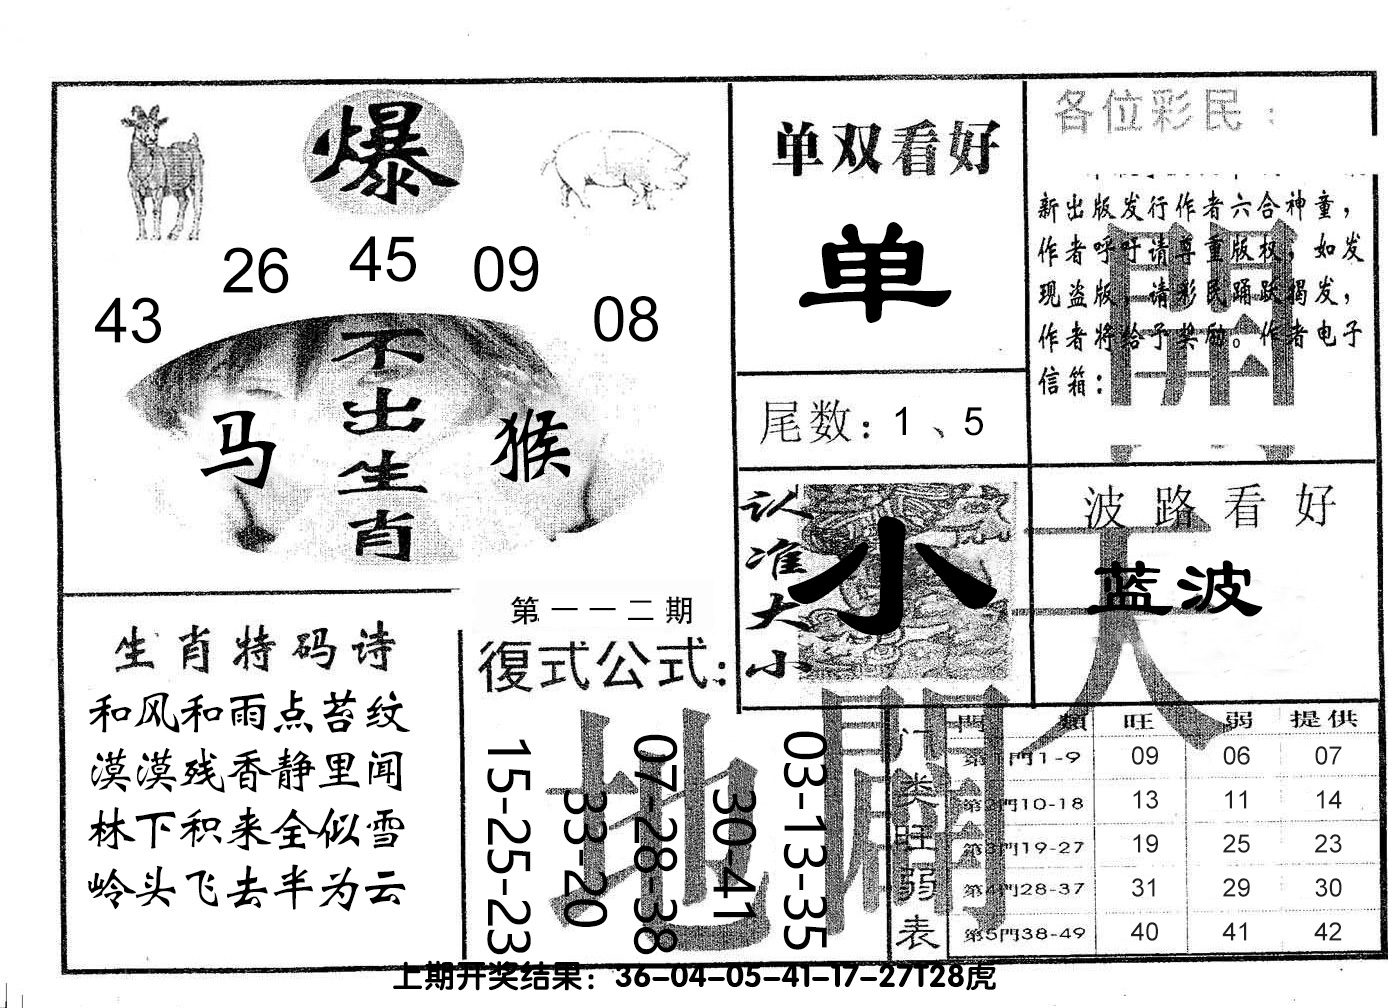 爆
43 26 45 09 08
不出生肖
马 猴
生肖特码诗
和风和雨点苔纹
漠漠残香静里闻
林下积来全似雪
岭头飞去半为云
第一一二期
復式公式：
15-25-23
33-20
07-28-38
30-41
03-13-35
单双看好
单
尾数：1、5
认准大小
小
各位彩民：
新出版发行作者六合神童，
作者呼吁请尊重版权，如发
现盗版，请彩民踊跃揭发，
作者将给予奖励。作者电子
信箱：
波路看好
蓝波
天
開
地
閗
门类旺弱表
門 類 旺 弱 提供
第1門1-9 09 06 07
第2門10-18 13 11 14
第3門19-27 19 25 23
第4門28-37 31 29 30
第5門38-49 40 41 42
上期开奖结果：36-04-05-41-17-27T28虎